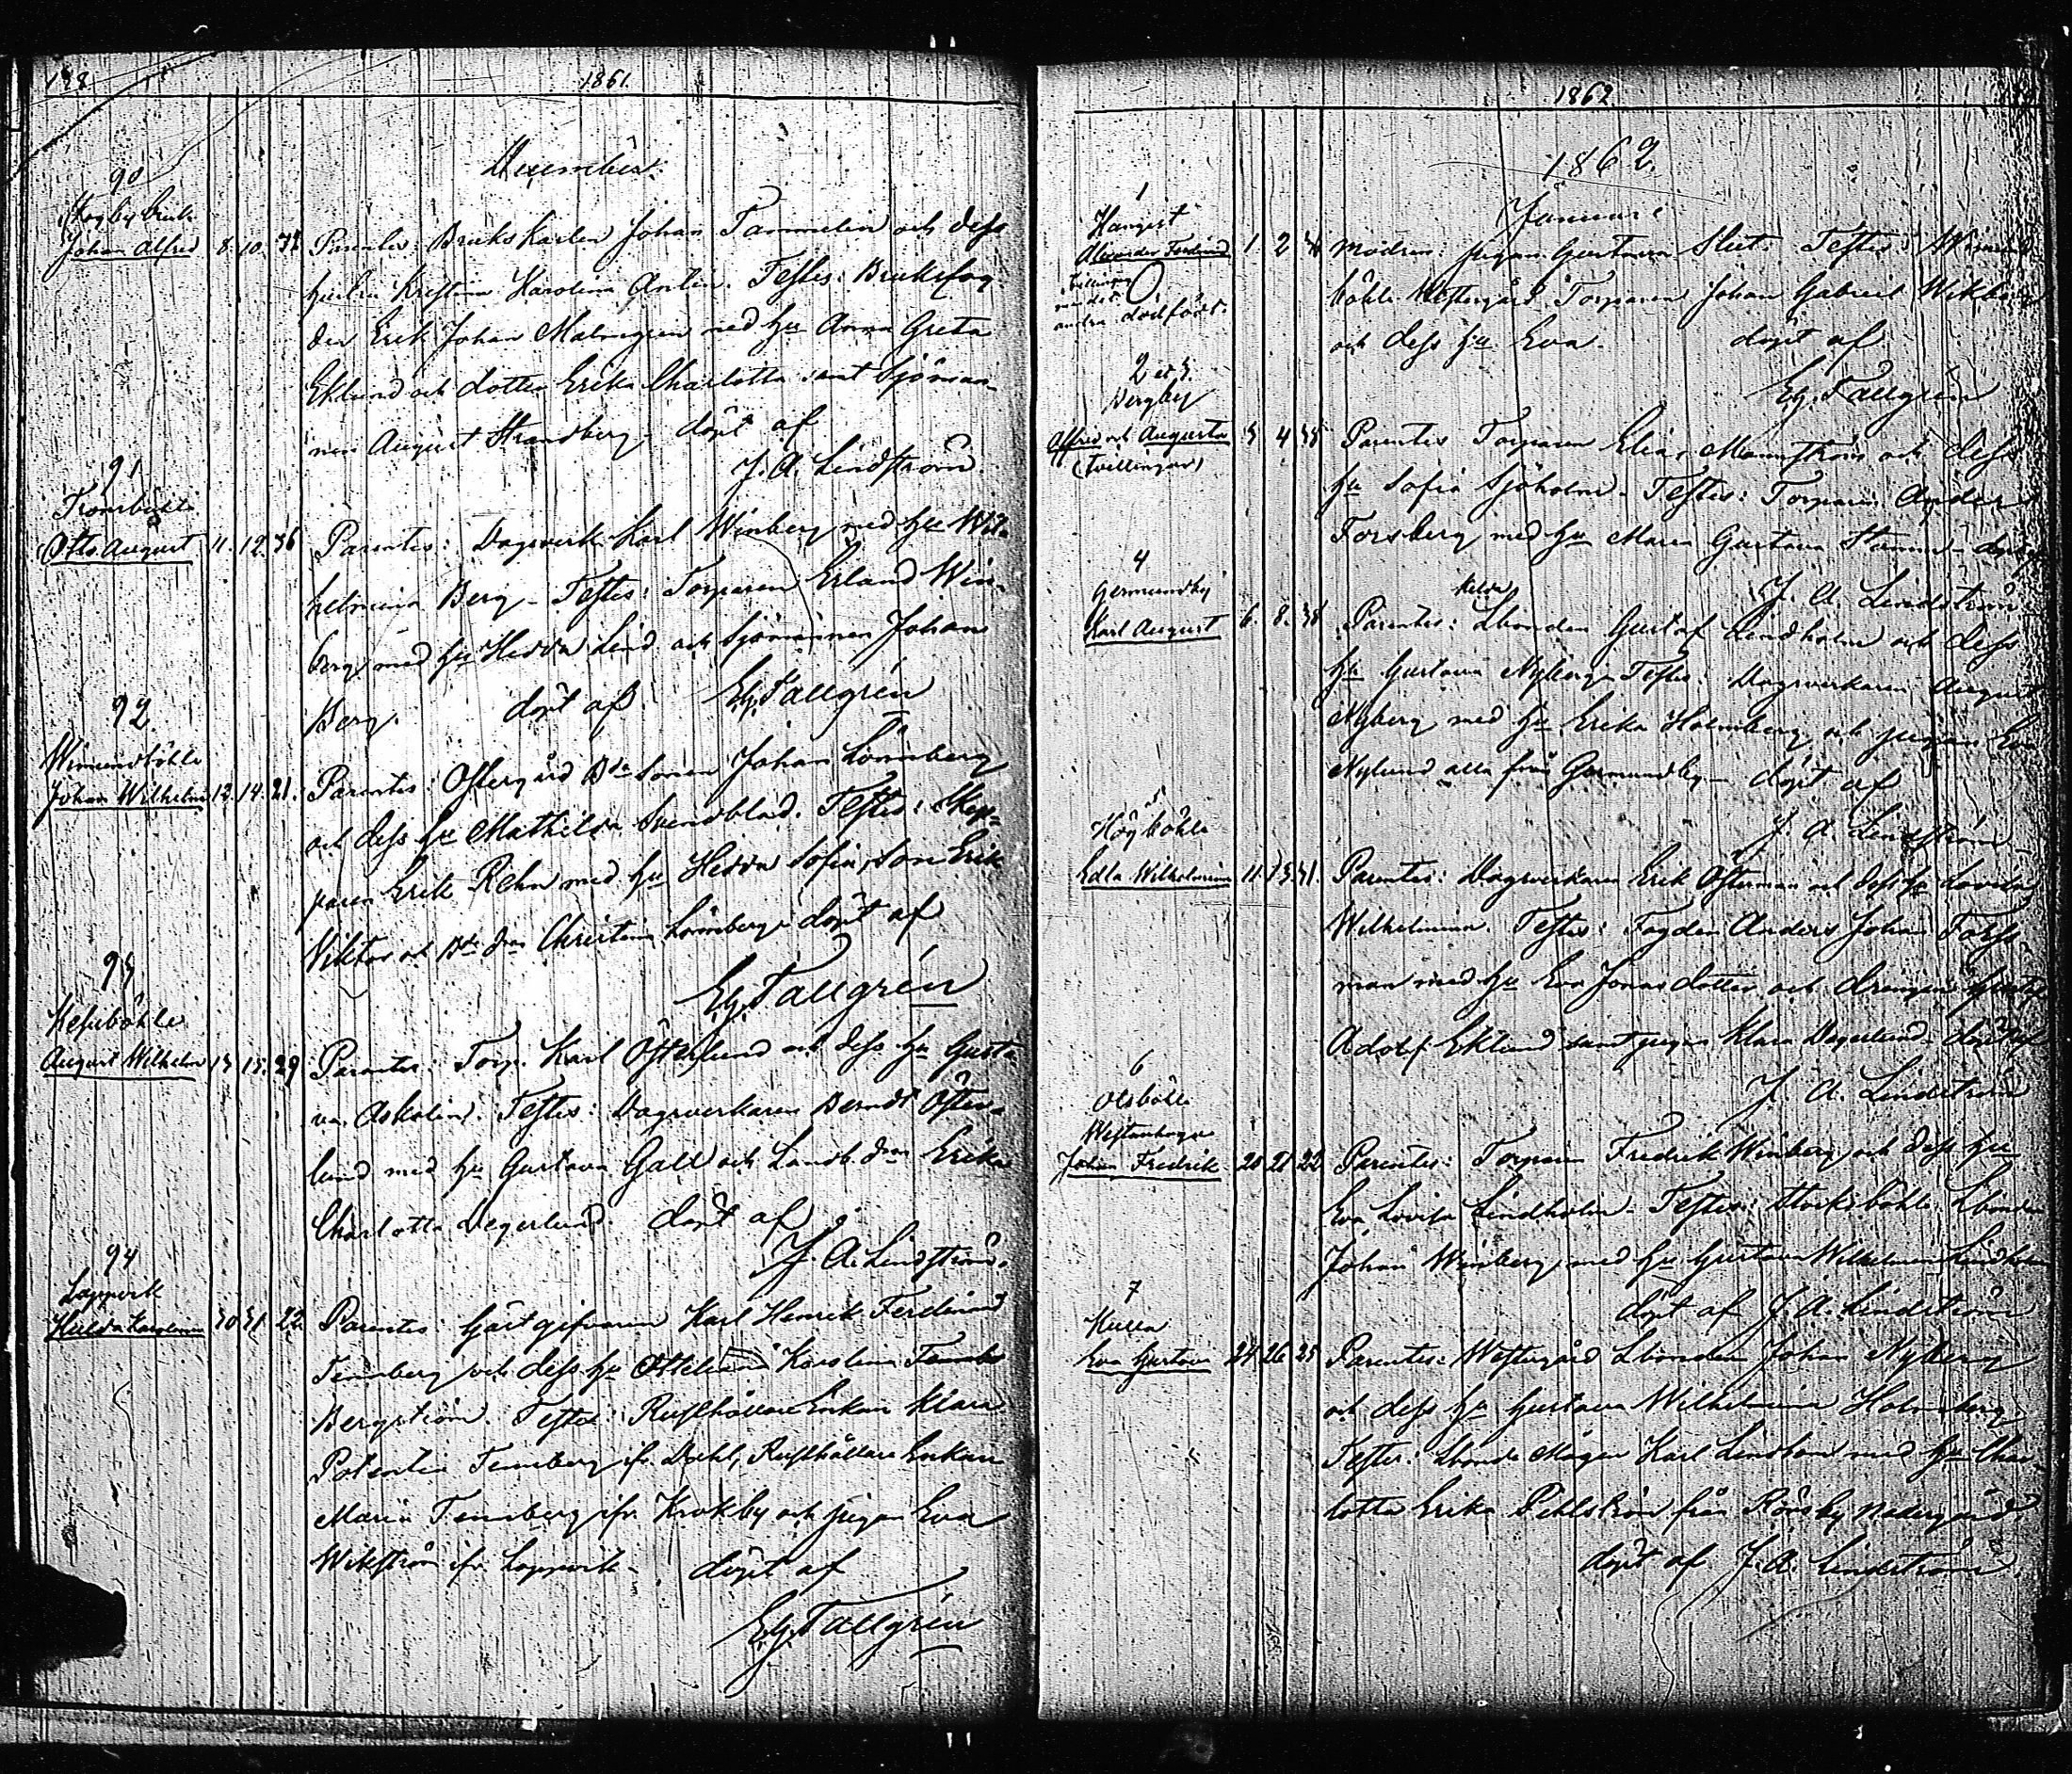 188
1861.
December.
90
Skogby bruk
Johan Alfred 8. 10. 32 Parentes: Brukskarlen Johan Tammelin och dess
hustru Kristina Karolina Arlin. Testes: Bruksfog-
den Erik Johan Malmgren med hu Anna Greta
Eklund och dotter Erika Charlotta samt Sjöman-
nen August Strandberg - döpt af
J. A. Lindström
91
Tromsböhle
Otto August 11. 12. 36 Parentes: Dagsverk. Karl Winberg med hu Wil-
helmina Berg - Testes: Torparen Erland Win-
berg med hu Hedda Lind och Sjömannen Johan
Berg. döpt af Ey. Tallgrén
92
Wimundböhle
Johan Wilhelm 12. 14. 21. Parentes: Östergård Bde Sonen Johan Lönnberg
och dess hu Mathilda Svenblad. Testes: Skep-
paren Erik Rehn med hu Hedda Sofia, Son Erik
Viktor och Bde dn Christina Lönnberg - döpt af
Ey. Tallgrén
93
August Wilhelm 13 15. 29 Parentes: Torp. Karl Österlund och dess hu Gusta-
va Askolin. Testes: Dagsverkaren Berndt Öster-
lund med hu Gustava Gall och Landb. dn Erika
Charlotta Degerlund. döpt af
J. A. Lindström.
94
Lappvik
Hulda Karolina 30 31. 22. Parentes: Gästgifvaren Karl Henrik Ferdinand
Tennberg och dess hu Ottiliana Karolina
Bergström. Testes: Rusthållare Enkan Klara
Potentia Tennberg ifr. Dahl, Rusthållare Enkan
Maria Tennberg ifr. Krokby och pigan Eva
Wikström ifr. Lappvik - döpt af
Ey. Tallgrén
1862
1862.
Januari
1
Hangist
Alexander Ferdinand 1. 2 Modren: pigan Gustava Slut. Testes: Wimund-
tvilling
andra dödfödt.
böhle Westergård Torparen Johan Gabriel Wikberg
och dess hu Eva. döpt af
Ey. Tallgrén
2 et 3.
Bergby
Alfred och Augusta 3 4 38 Parentes Torparen Elias Mannström och dess
(Tvillingar)
hu Sofia Sjöholm - Testes: Torparen Anders
Forsberg med hu Maria Gustava Stamm - döpt af
J. A. Lindström
4
Germundby
Karl August 6. 8. 38 Parentes: Lbonden Gustaf Lindholm och dess
hu Gustava Nyberg Testes: Dagsverkaren August
Nyberg med hu Erika Holmberg och pigan Eva
Nylund alla från Germundby - döpt af
J. A. Lindström
5
Högböhle
Edla Wilhelmina 11. 13. 31. Parentes: Dagsverkaren Erik Österman och dess hu Lovisa
Wilhelmina. Testes: Fogden Anders Johan Forss-
man med hu Eva Jonasdotter och drengen Gustaf
Adolf Eklund samt pigan Klara Degerlund - döpt af
J. A. Lindström
6
Olsböhle
Westanhaga
Johan Fredrik 20 21 22 Parentes: Torparen Fredrik Winberg och dess hu
Eva Lovisa Lindholm - Testes: Stocksböhle Lbonden
Johan Winberg med hu Gustava Wilhelmina Lindholm
döpt af J. A. Lindström
7
Kulla
Eva Gustava 24 26 25 Parentes: Westergård Lbonden Johan Nyberg
och dess hu Gustava Wilhelmina Holmberg
Testes: Lbonde Mågen Karl Lindbom med hu Char-
lotta Erika Pihlström från Rörsby nedergård
döpt af J. A. Lindström